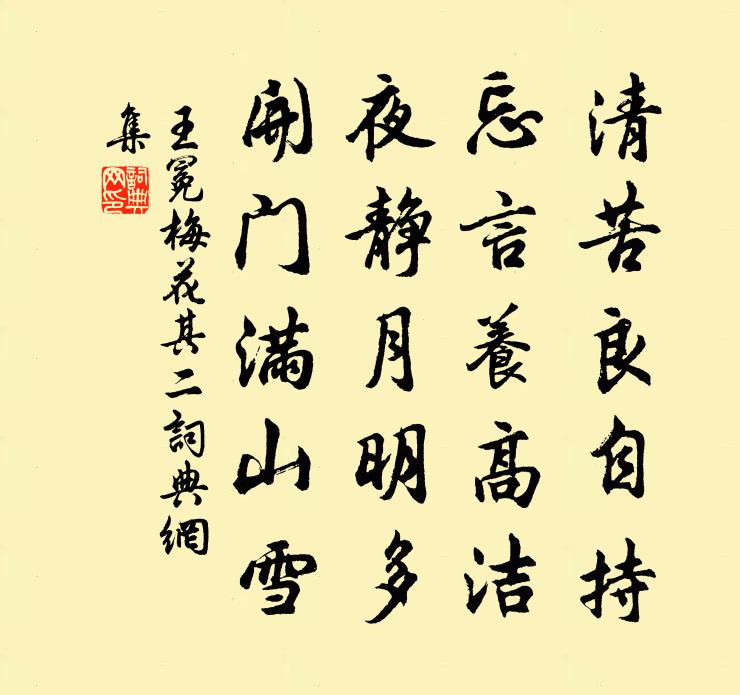 清苦良自持
忘言養高洁
夜静月明多
開门满山雪
王冕梅花其二詞典網
集
詞典網印